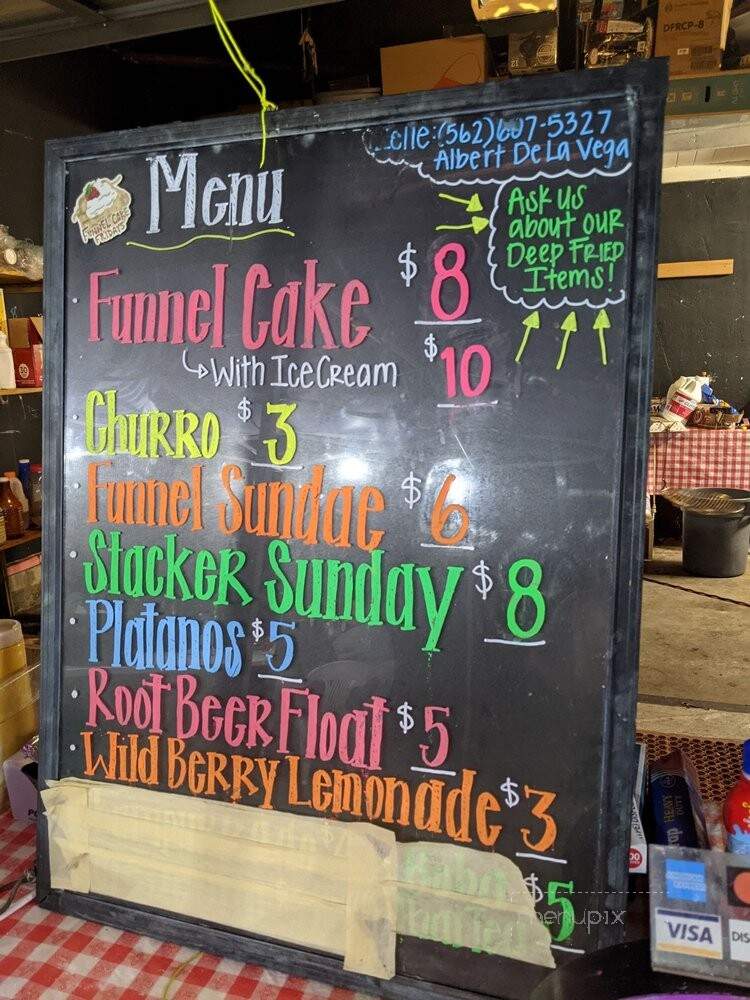 DFRCP-8
(562)607-5327
Albert De La Vega
Menu
FUNNEL CAKE
FRIDAYS
Ask us
about our
Deep Fried
Items!
Funnel Cake $8
With Ice Cream $10
Churro $3
Funnel Sundae $6
Stacker Sunday $8
Platanos $5
Root Beer Float $5
Wild Berry Lemonade $3
$5
menupix
VISA
DIS